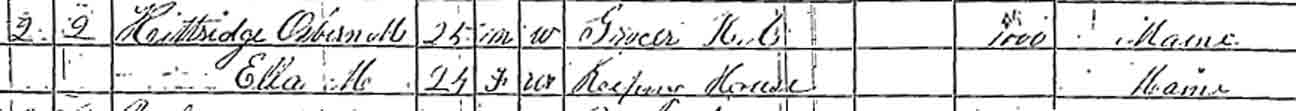 2 2 Kittridge Osbern M 25 m w Grocer 1000 Maine
Ella M 24 F W Keeping House Maine